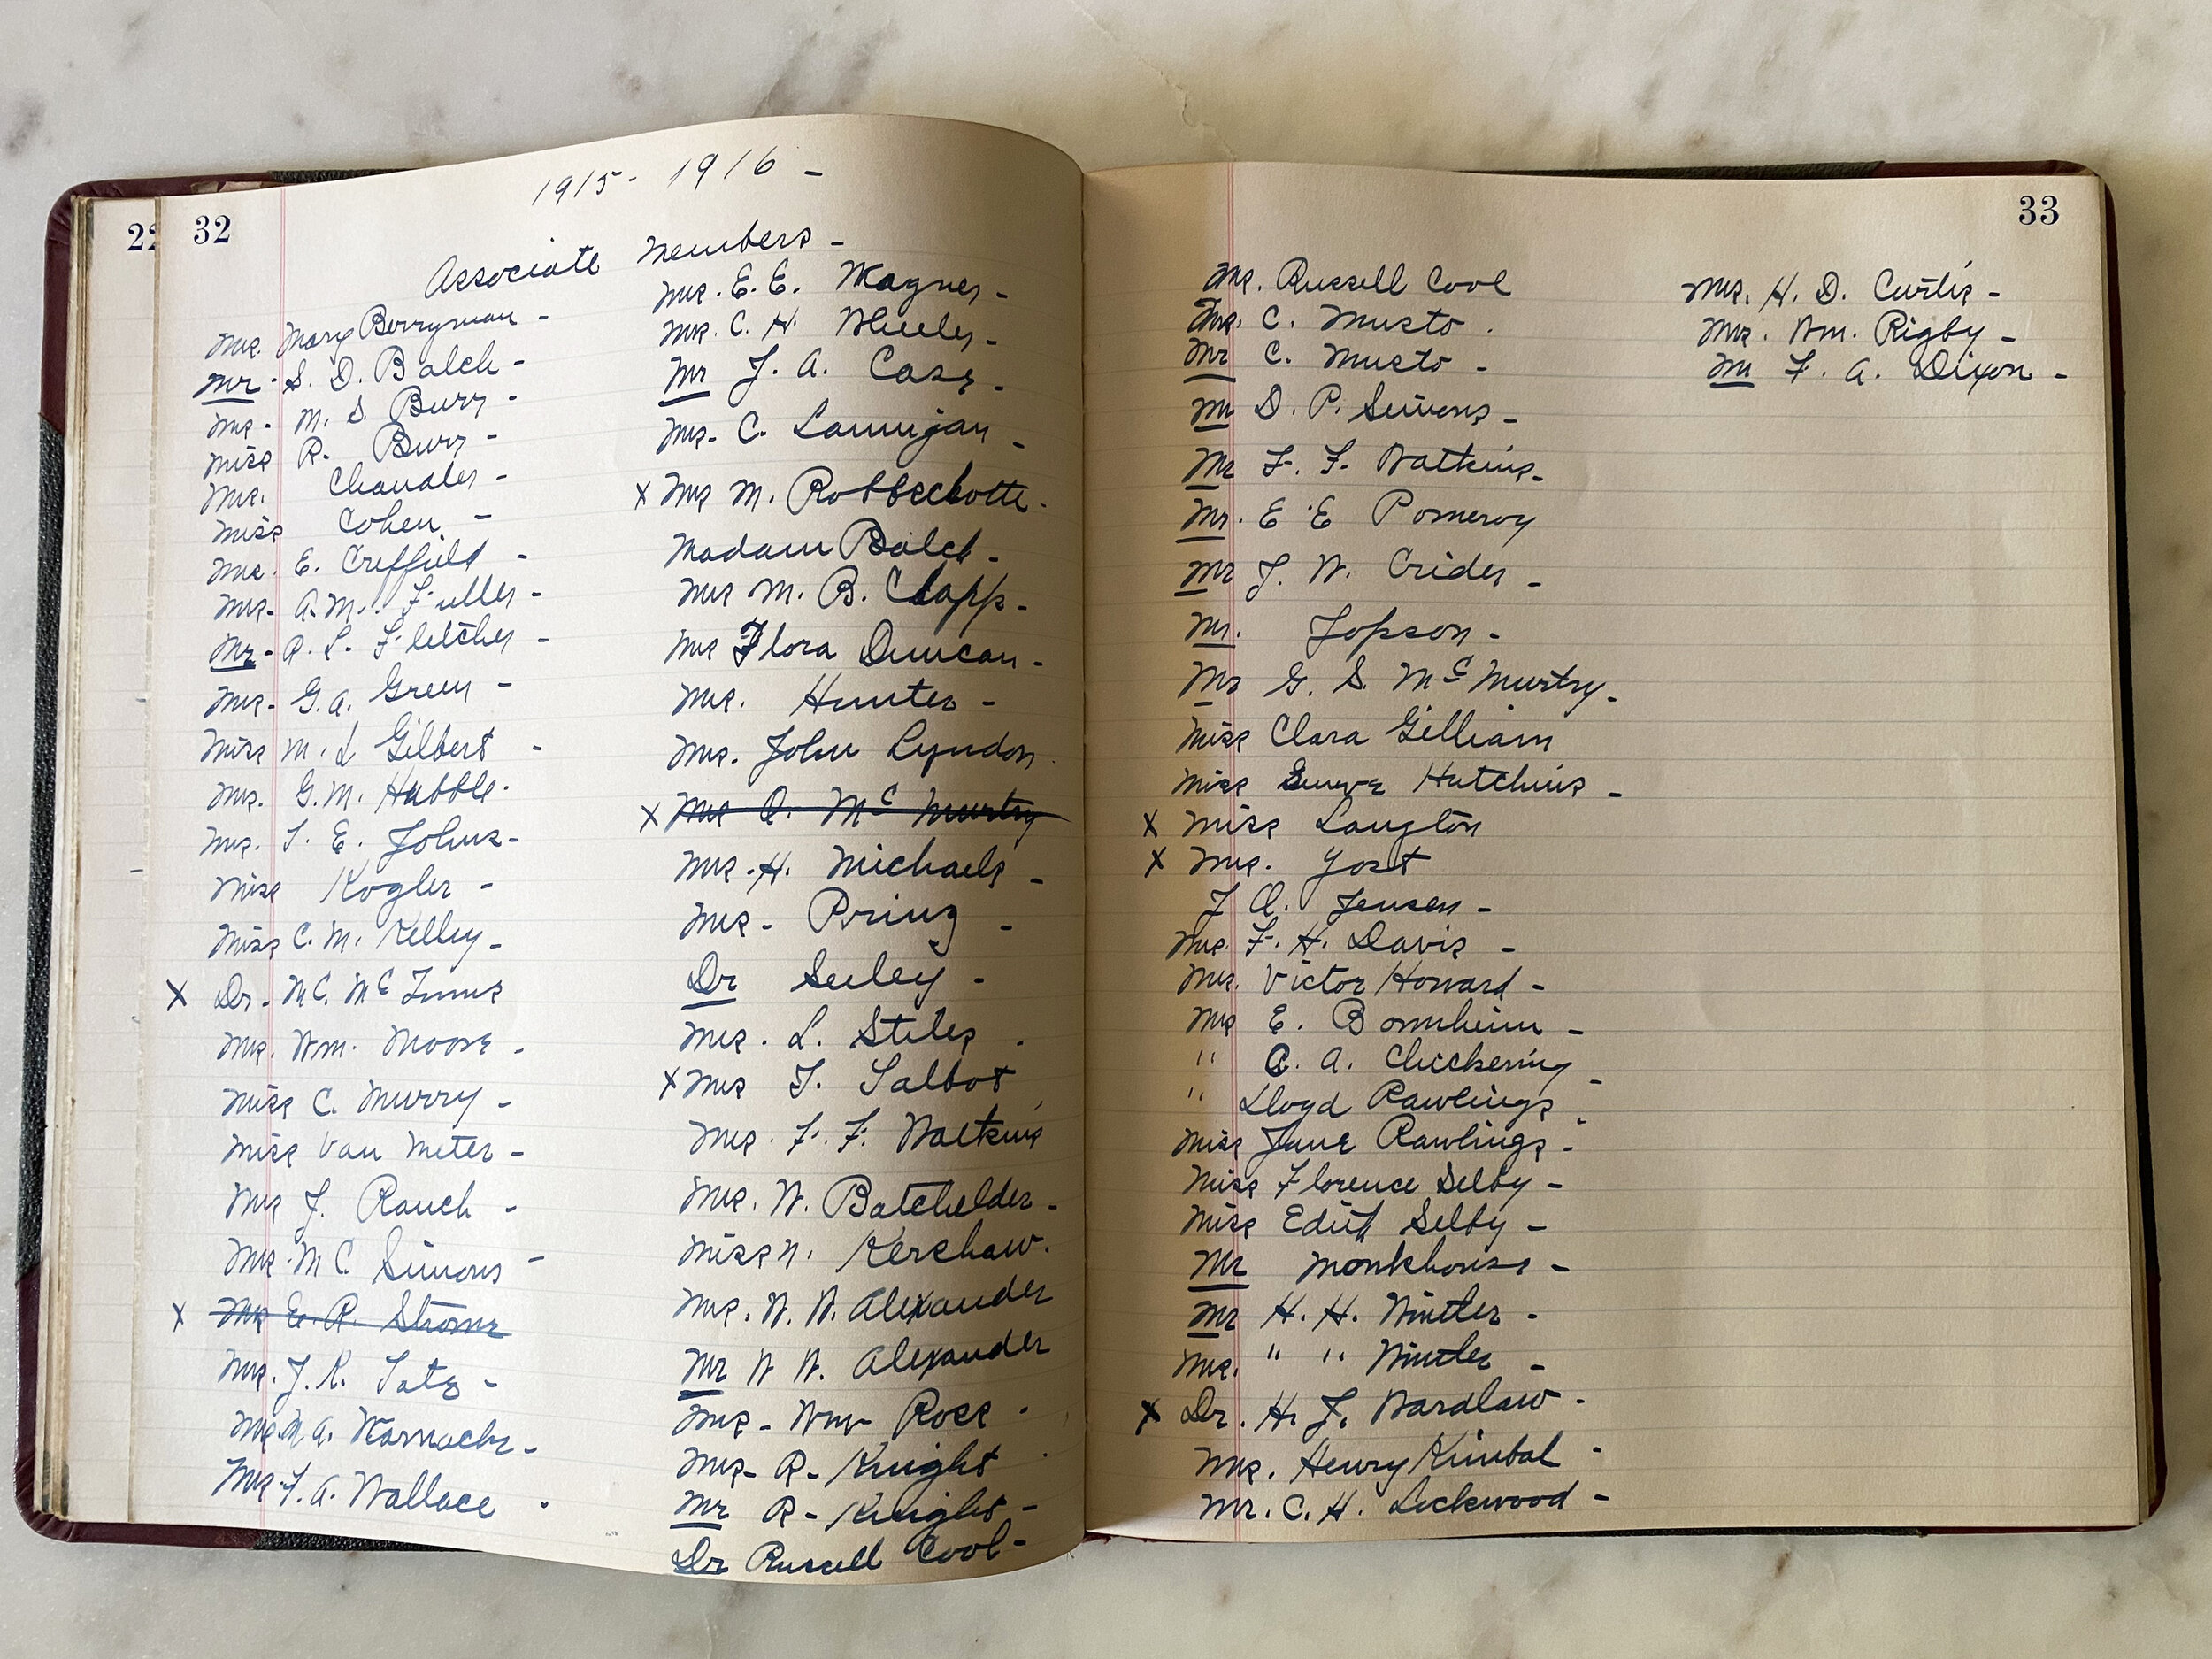 22
32
1915 - 1916 -
Associate Members -
Mrs. Mary Berryman -
Mr. S. D. Balch -
Mrs. M. S. Burr -
Miss R. Burr -
Mrs. Chandler -
Miss Cohen -
Mrs. E. Creffield -
Mrs. A. M. Fuller -
Mr. R. L. Fletcher -
Mrs. G. A. Green -
Miss M. L Gilbert -
Mrs. G. M. Hubble.
Mrs. T. E. Johns -
Miss Kogler -
Miss C. M. Kelley -
x Dr. M C. Mc
Mrs. Wm. Moore -
Miss C. Murry -
Miss Van Meter -
Mrs J. Rauch -
Mrs. M C Simons -
x E. R. Strome
Mrs. J. K. Tate -
A.
Mrs. F. A. Wallace .
Mrs. E. E. Wagner -
Mrs. C. H. Wheeler -
Mr J. A. Case -
Mrs. C. Lannigan -
x Mrs M.
Madam Balch -
Mrs M. B. Clapp -
Mrs Flora Duncan -
Mrs. Hunter -
Mrs. John Lyndon
x Mrs Mc Murtry
Mrs. H. Michaels -
Mrs. Prinz -
Dr Seeley -
Mrs. L. Stiles .
x Mrs T. Talbot
Mrs. F. F. Watkins
Mrs. W. Batchelder -
Miss N. Kershaw.
Mrs. W. W. Alexander
Mr W W. Alexander
Mrs - Wm Ross .
Mrs - R - Knight
Mr R - Knight -
Dr Russell Cool -
33
Mrs. Russell Cool
Mrs. C. Musto .
Mr C. Musto -
Mr D. P. Simons -
Mr F. F. Watkins -
Mr. E E Pomeroy
Mr J. W. Crider -
Mr. Jopson -
Mr G. S. Mc Murtry -
Miss Clara Gilliam
Miss Hutchins -
x Miss Langton
x Mrs. Yost
J Jensen -
Mrs. F. H. Davis -
Mrs. Victor Howard -
Mrs E. Bonnheim -
" A. Chickering -
" Lloyd Rawlings -
Miss June Rawlings -
Miss Florence Selby -
Miss Edith Selby -
Mr Monkhouse -
Mr H. H. Wintler -
Mrs. " " Wintler -
x Dr. H. J. Wardlaw -
Mrs. Henry Kimbal -
Mr. C. H. Lockwood -
Mrs. H. D. Curtis -
Mrs. Wm. Rigby -
Mr F. A. Dixon -